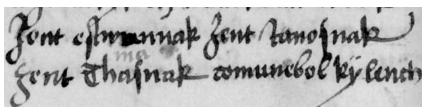 Zent estwannak Zent Janosnak
Zent Thasnak comunebol kÿlench